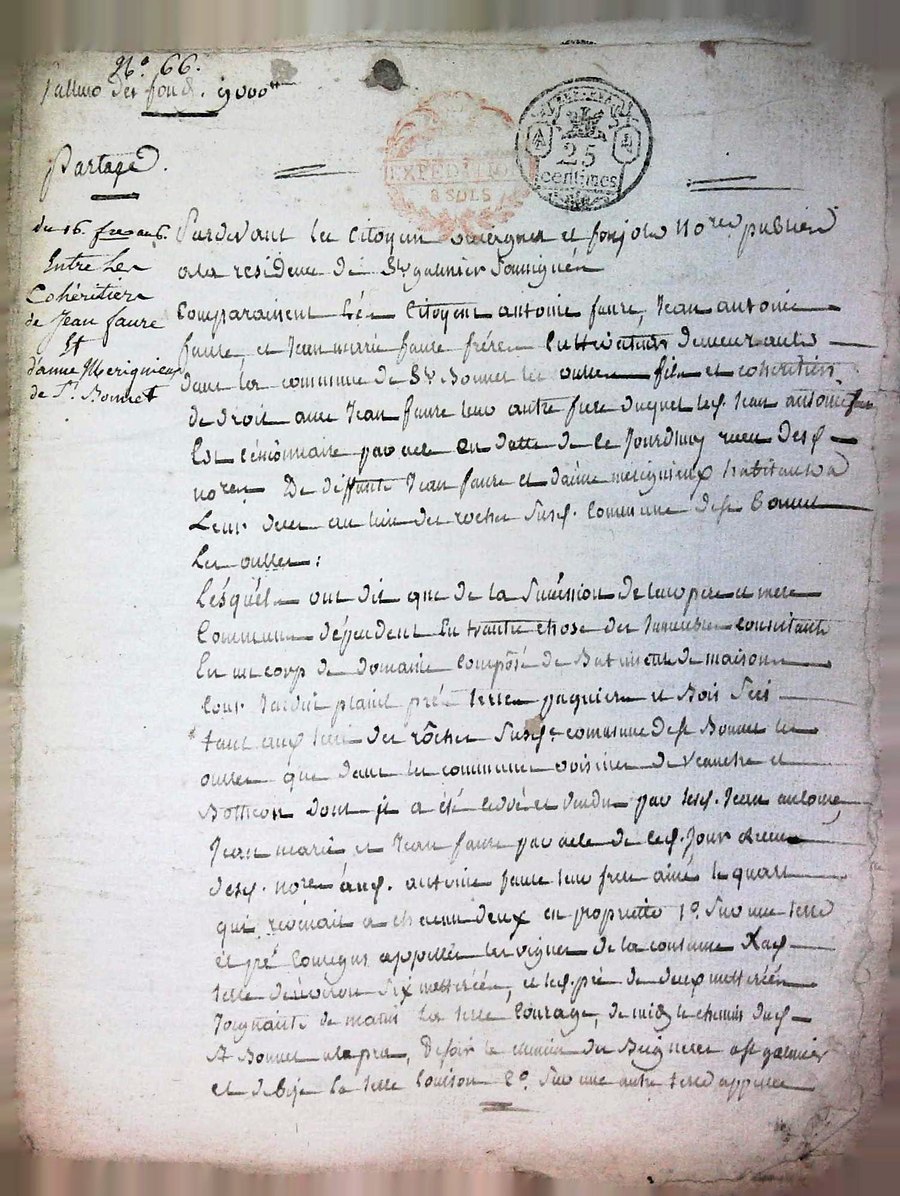 N.º 66.
Valleur des fond. 9000
Partage.
EXPEDITION
8 SOLS
25
centimes
du 16.
Entre les
Cohéritiers
de Jean faure
Et
d'anne Merignieux
de S.t Bonnet
Pardevant les Citoyens et no.res publics
a la residence de S.t galmier soussignés
Comparaissent Les Citoyens antoine faure, Jean antoine
faure, et Jean marie faure frères Cultivateurs demeurants
dans la commune de S.t Bonnet les oulles fils et cohéritiers
de droit avec Jean faure leur autre frere duquel led. Jean antoine
Est Céssionnaire par acte en datte de ce Jourdhuy recu desd.
no.res De deffunts Jean faure et danne merignieux habitants a
Leur deces au lieu des rocher susd. Commune de S.t Bonnet
Les oulles :
Lésquéls ont dit que de la Sucéssion de leur pere et mere
Commune dépendent Entrautre chose des Immeubles Consistants
En un corp de domaine Composé de Batiments de maison
Cour Jardin plant pré terre paquier et Bois Sis
tant aud. lieu des rocher susd. commune de S.t Bonnet les
oulles que dans les communes voisines de veauche et
Botheon dont il a été cedé et vendu par lesd. Jean antoine,
Jean marie et Jean faure par acte de ced. Jour Recu
desd. no.res aud. antoine faure leur frere ainé le quart
qui revenait a chacun deux en propriété 1.º Sur une terre
et pré Contigus appellés les vignes de la
terre denviron Six metterées, et led. pré de deux metterées
Joignants de matin La terre Courage, de midy le chemin dud.
S.t Bonnet, de soir le chemin a S.t galmier
et de bise La terre Couison 2.º Sur une autre terre appellée